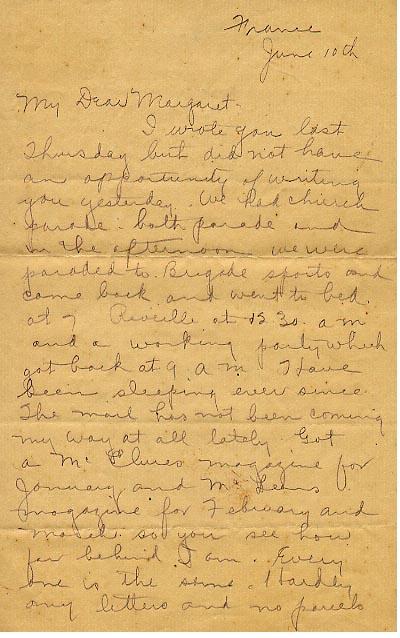 France
June 10th
My Dear Margaret.
I wrote you last
Thursday but did not have
an opportunity of writing
you yesterday. We had church
parade. bath parade and
in the afternoon we were
paraded to Brigade sports and
came back and went to bed.
at 7 Reveille at 12 30. a m
and a working party which
got back at 9 a m. I have
been sleeping ever since.
The mail has not been coming
my way at all lately. Got
a McClures magazine for
January and McLeans
magazine for February and
March so you see how
far behind I am. Every
one is the same. Hardly
any letters and no parcels